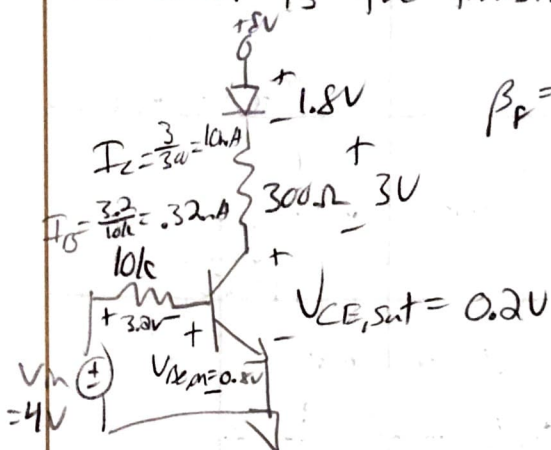 +5V
+
1.8V
-
β_F =
I_C = 3/300 = 10mA
+
300Ω 3V
-
I_B = 3.2/10k = .32mA
10k
+
+ 3.2V -
+
V_CE,sat = 0.2V
-
V_BE,on = 0.8V
Vin
= 4V
+
-